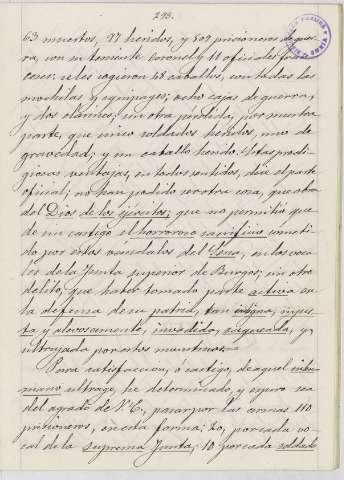 293.
63 muertos, 97 heridos, y 502 prisioneros de gue-
rra, con su teniente Coronel y 11 oficiales fran-
ceses: se les cogieron 48 caballos, con todas las
mochilas y equipages; ocho cajas de guerra,
y dos clarines, sin otra pérdida, por nuestra
parte, que cinco soldados heridos, uno de
gravedad; y un caballo herido. Estas prodi-
giosas ventajas, en todos sentidos, dice el parte
oficial; no han podido ser otra cosa, que obra
del Dios de los ejércitos; que no permitió que-
de sin castigo el horroroso sacrificio cometi-
do por estos vándalos del Sena, en los voca-
les de la Junta superior de Burgos; sin otro
delito, que haber tomado parte activa en
la defensa de su patria, tan indigna, injus-
ta y alevosamente, invadida, saqueada, y
ultrajada por estos monstruos.
Para satisfaccion, ó castigo, de aquel inhu-
mano ultrage, he determinado, y espero sea
del agrado de V. E., pasar por las armas 110
prisioneros, en esta forma: 20, por cada vo-
cal de la suprema Junta; 10 por cada soldado